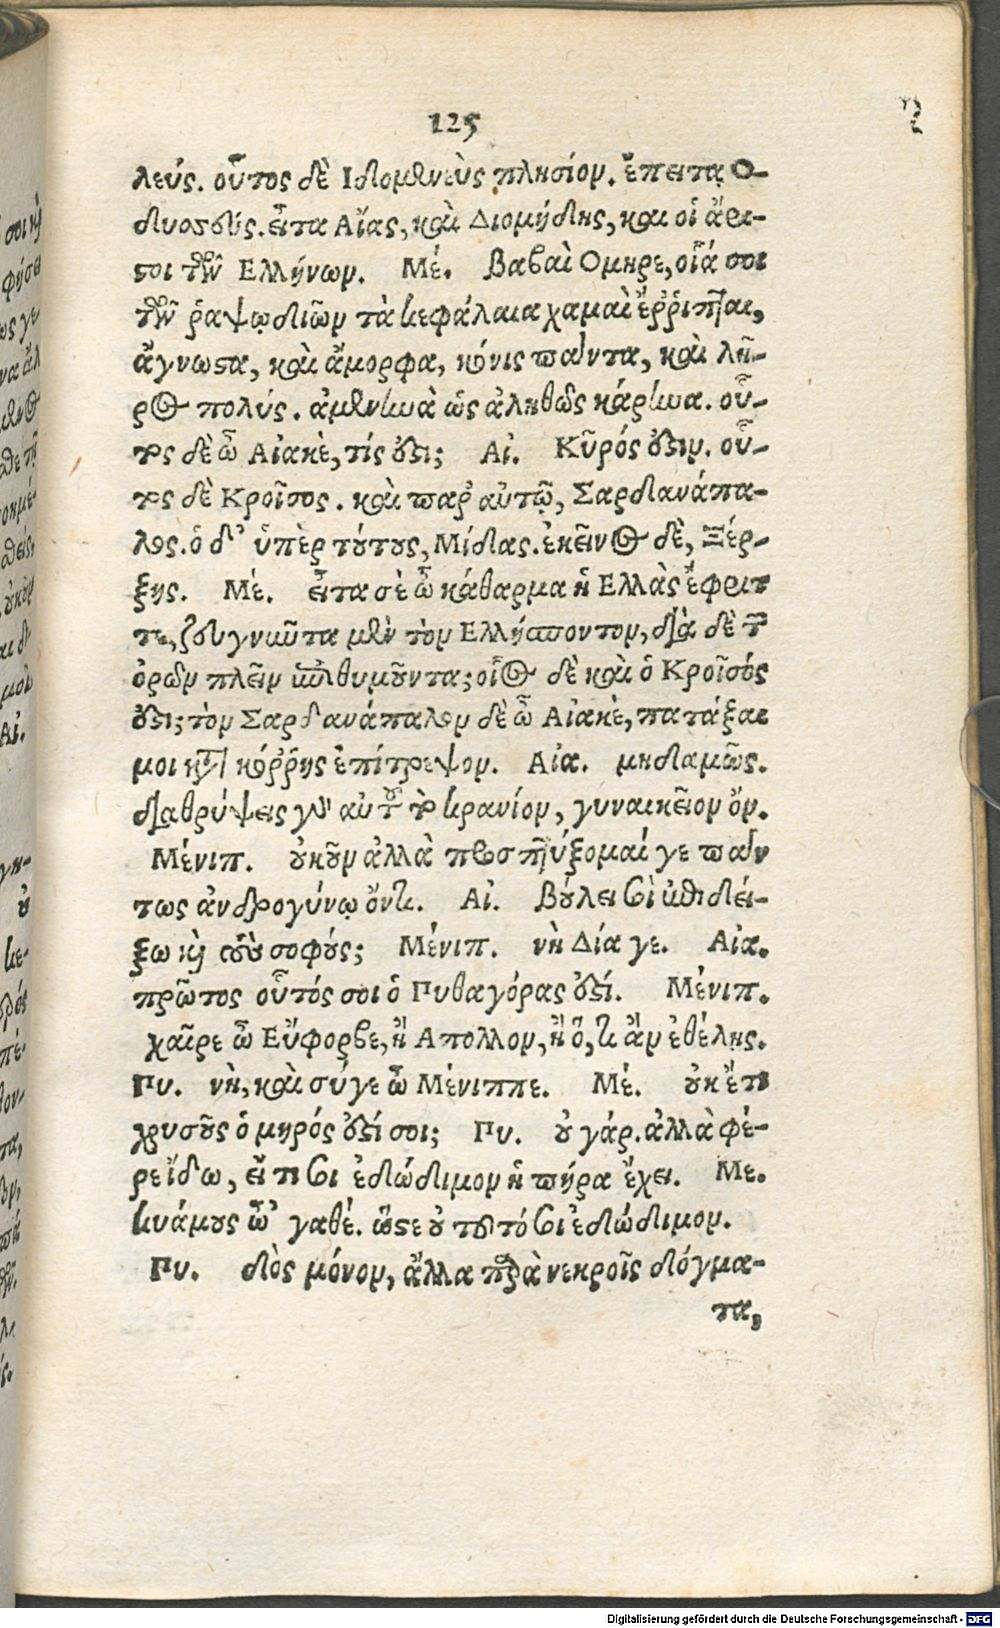 125
λεύς. οὗτος δὲ Ιδομενεὺς πλησίον. ἔπειτα Ο-
δυσσεύς. εἶτα Αἴας, καὶ Διομήδης, καὶ οἱ ἄρι-
στοι τῶν Ελλήνων. Μέ. Βαβαὶ Ομηρε, οἷά σοι
τῶν ῥαψῳδιῶν τὰ κεφάλαια χαμαὶ ἔῤῥιπται,
ἄγνωστα, καὶ ἄμορφα, κόνις πάντα, καὶ λῆ-
ρος πολύς. ἀμενηνὰ ὡς ἀληθῶς κάρηνα. οὗ-
τος δὲ ὦ Αἰακὲ, τίς ἐστι; Αἰ. Κῦρός ἐστιν. οὗ-
τος δὲ Κροῖσος. καὶ παρ' αὐτῷ, Σαρδανάπα-
λος. ὁ δ' ὑπὲρ τούτους, Μίδας. ἐκεῖνος δὲ, Ξέρ-
ξης. Μέ. εἶτα σὲ ὦ κάθαρμα ἡ Ελλὰς ἔφριτ
τε, ζευγνῦντα μὲν τὸν Ελλήσποντον, διὰ δὲ τῶν
ὀρῶν πλεῖν ἐπιθυμοῦντα; οἷος δὲ καὶ ὁ Κροῖσός
ἐστι; τὸν Σαρδανάπαλον δὲ ὦ Αἰακὲ, πατάξαι
μοι κατὰ κόῤῥης ἐπίτρεψον. Αἰα. μηδαμῶς.
διαθρύψεις γὰρ αὐτοῦ τὸ κρανίον, γυναικεῖον ὄν.
Μένιπ. οὐκοῦν ἀλλὰ προσπτύξομαί γε πάν
τως ἀνδρογύνῳ ὄντι. Αἰ. Βούλει σοὶ ἐπιδεί-
ξω καὶ τοὺς σοφούς; Μένιπ. νὴ Δία γε. Αἰα.
πρῶτος οὗτός σοι ὁ Πυθαγόρας ἐστί. Μένιπ.
χαῖρε ὦ Εὔφορβε, ἢ Απολλον, ἢ ὅ, τι ἂν ἐθέλης.
Πυ. νὴ, καὶ σύγε ὦ Μένιππε. Μέ. οὐκ ἔτι
χρυσοῦς ὁ μηρός ἐστί σοι; Πυ. οὐ γάρ. ἀλλὰ φέ-
ρε ἴδω, εἴ τί σοι ἐδώδιμον ἡ πήρα ἔχει. Με.
κυάμους ὦ' γαθέ. ὥστε οὐ τουτό σοι ἐδώδιμον.
Πυ. δὸς μόνον, ἄλλα παρὰ νεκροῖς δόγμα-
τα,
Digitalisierung gefördert durch die Deutsche Forschungsgemeinschaft - DFG